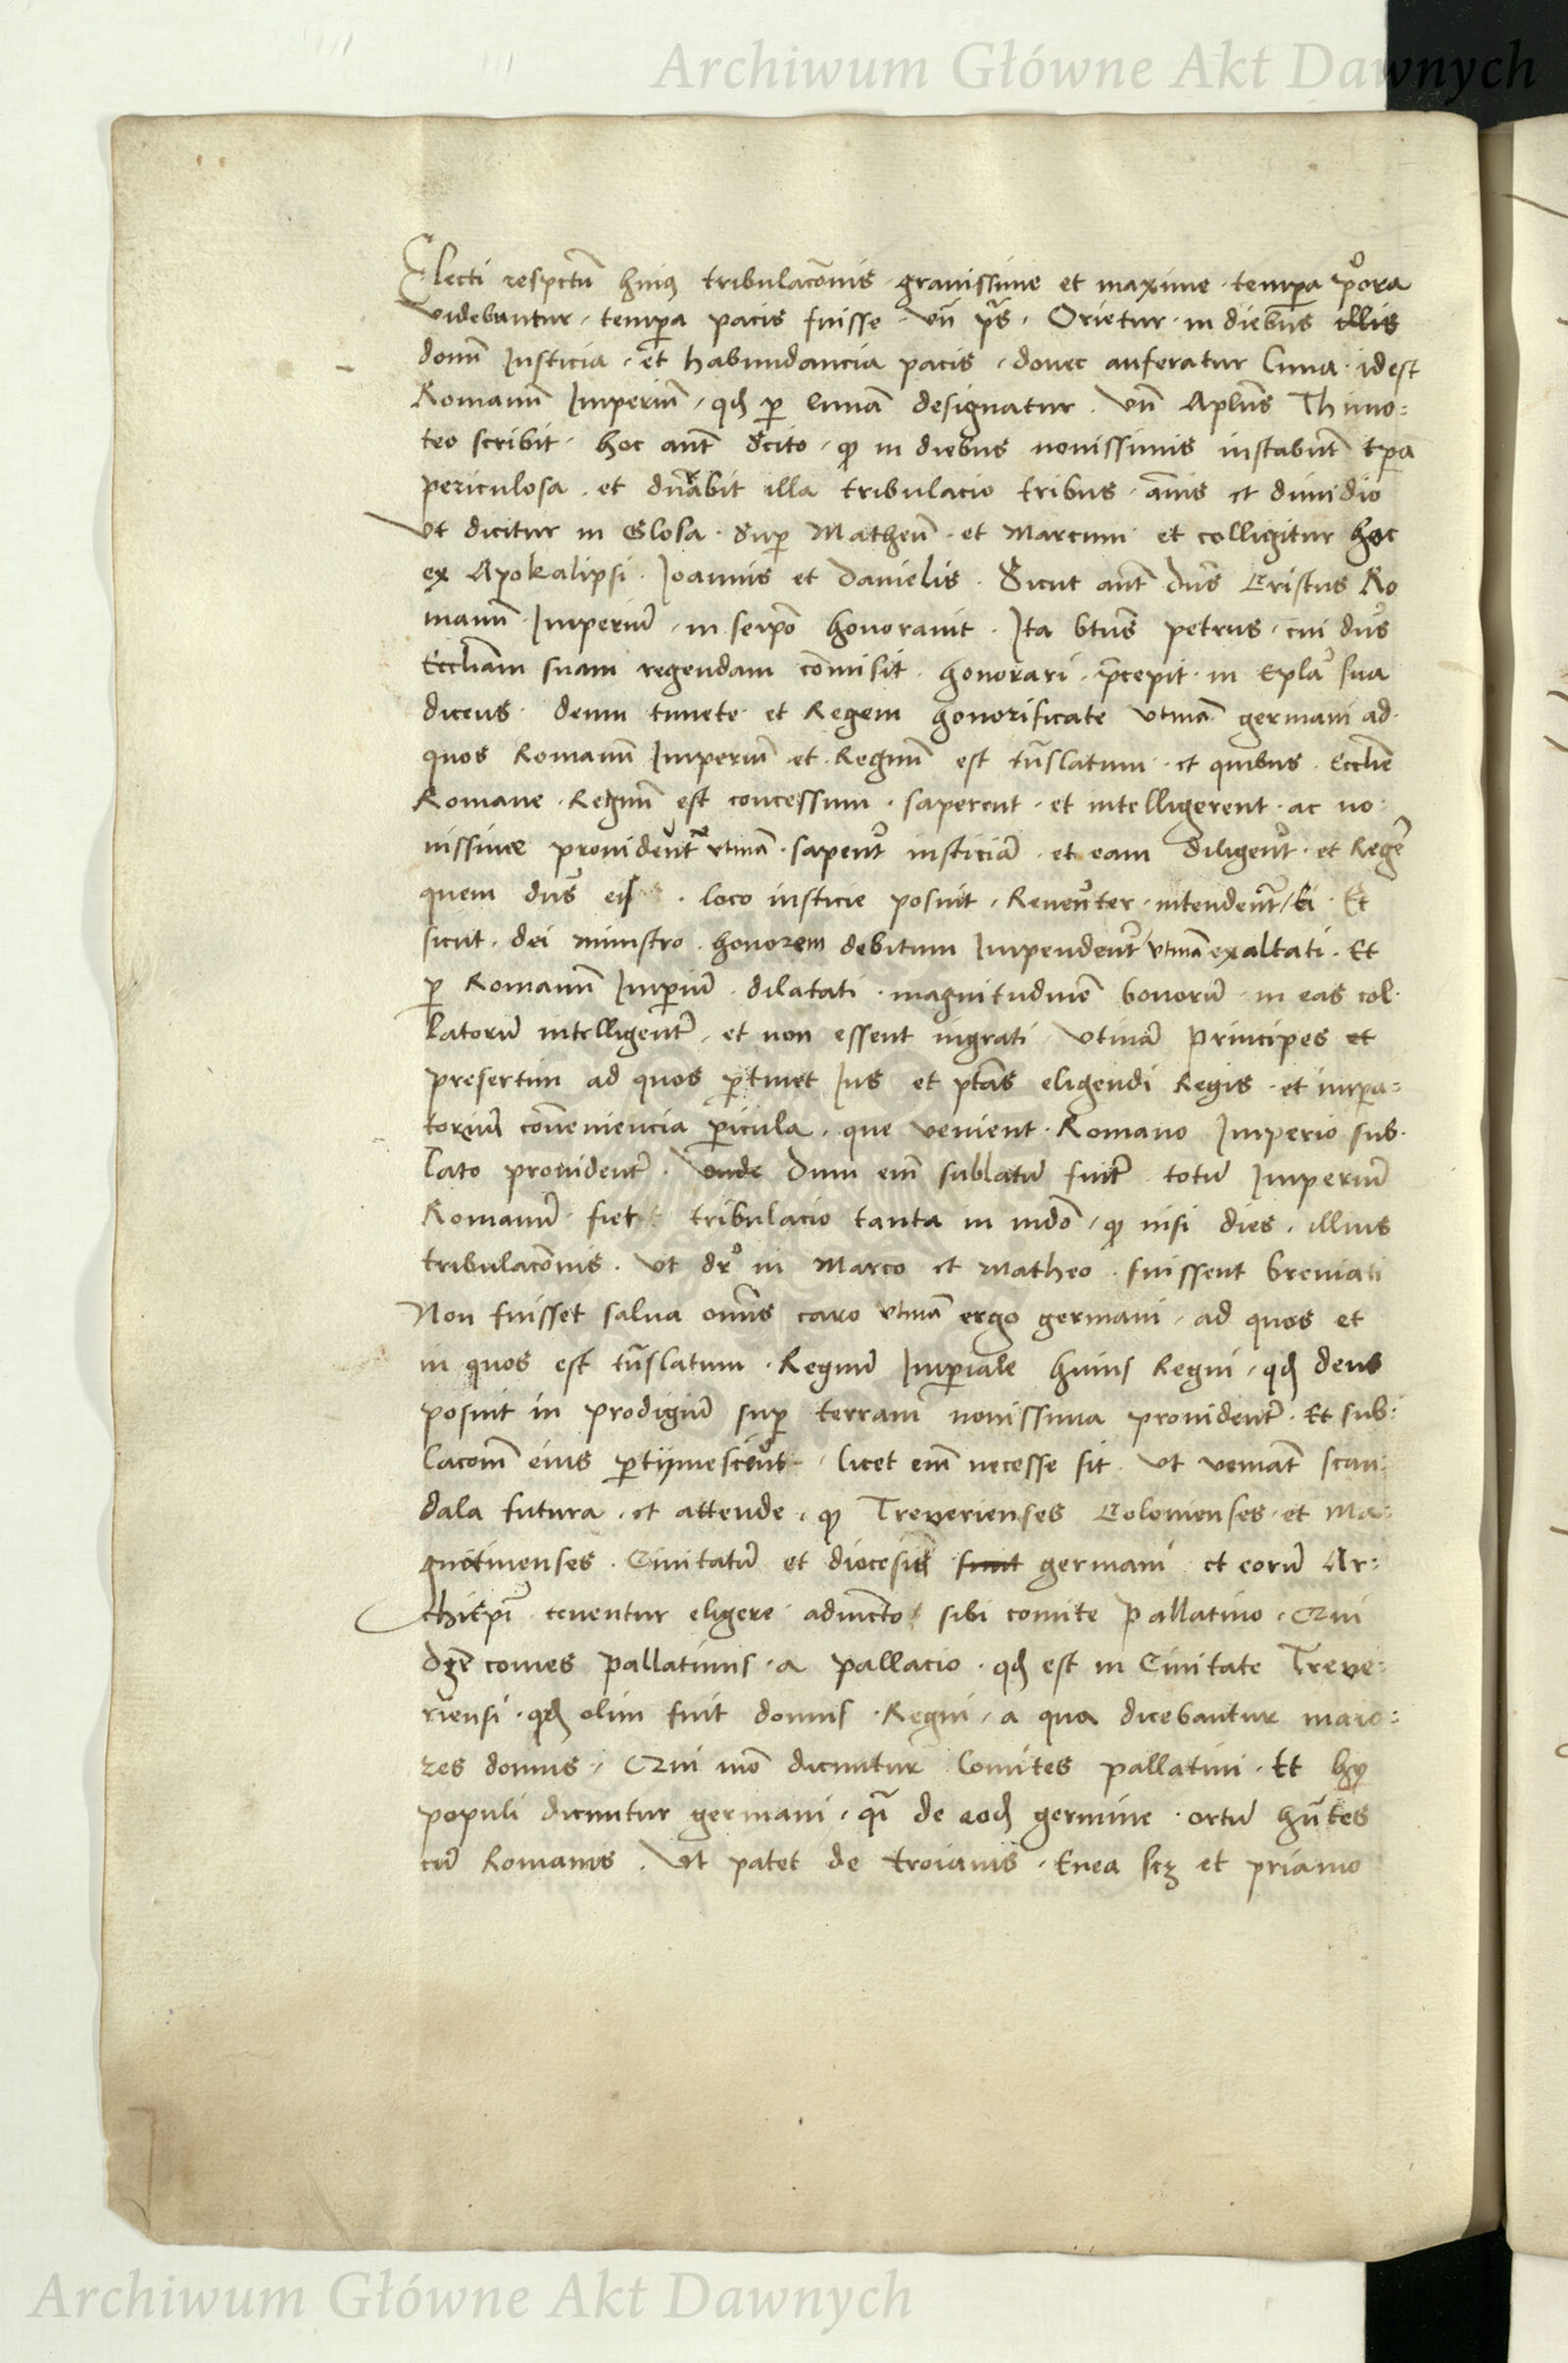 Archiwum Główne Akt Dawnych
Electi respctū huiꝰ tribulacōnis grauissime et maxime tempa pᵒora
videbantur tempa pacis fuisse vñ ps̄ Orietur in diebus illis
domī Justicia et habundancia pacis donec auferatur luna idest
Romanū Imperiū qđ p̲ lunā designatur Vñ Aplūs Thimo=
teo scribit hoc aūt scito ꝙ in diebus nouissimis instabūt tpa
periculosa et durabit illa tribulacio tribus annis et dimidio
Vt dicitur in Glosa sup Matheū et Marcum et colligitur hoc
ex Apokalipsi Joannis et Danielis Sicut aūt dn̄s Cristus Ro
manū Imperiū in seip̄o honorauit Ita btūs petrus cui dn̄s
Eccliam suam regendam cōmisit honorari p̄cepit in Epla sua
dicens deum timete et Regem honorificate vtinā germani ad
quos Romanū Imperiū et Regnū est trāslatum et quibus Ecclie
Romane Regnū est concessum saperent et intelligerent ac no=
uissime prouiderēt vtinā saperēt iusticiā et eam diligerēt et Regē
quem dn̄s eis loco iusticie posuit Reuerēter intenderēt Et
sicut dei ministro honorem debitum Impenderēt vtinā exaltati Et
p̲ Romanū Imperiū dilatati magnitudinē bonorū in eas col
latorū intelligerēt et non essent ingrati Vtinā Principes et
presertim ad quos p̲tinet Ius et ptās eligendi Regis et impa=
torum p̲icula que venient Romano Imperio sub
lato prouiderēt Dum em̄ sublatū fuit totū Imperiū
Romanū fiet tribulacio tanta in mūdo ꝙ nisi dies illius
tribulacōnis Vt dr̄ in Marco et Matheo fuissent breuiati
Non fuisset salua omīs caro vtinā ergo germani ad quos et
in quos est trāslatum Regnū Imperiale huius Regni qđ deus
posuit in prodigiū sup̲ terram nouissima prouiderēt Et sub=
lacōm eius licet em̄ necesse sit Vt veniāt scan=
dala futura et attende ꝙ Treverienses Colonienses et Ma=
guntinenses Ciuitatū et diocesis sunt germani et eorū Ar=
chiepi tenentur eligere adiuncto sibi comite Pallatino Qui
dr̄ comes Pallatinus a pallacio qđ est in Ciuitate Treve=
riensi qđ olim fuit domus Regni a qua dicebantur maio=
res domus Qui mō dicuntur Comites pallatini Et hy
populi dicuntur germani qā de eodē germine ortū hūtes
cū Romanis Vt patet de troianis Enea scȝ et priamo
Archiwum Główne Akt Dawnych